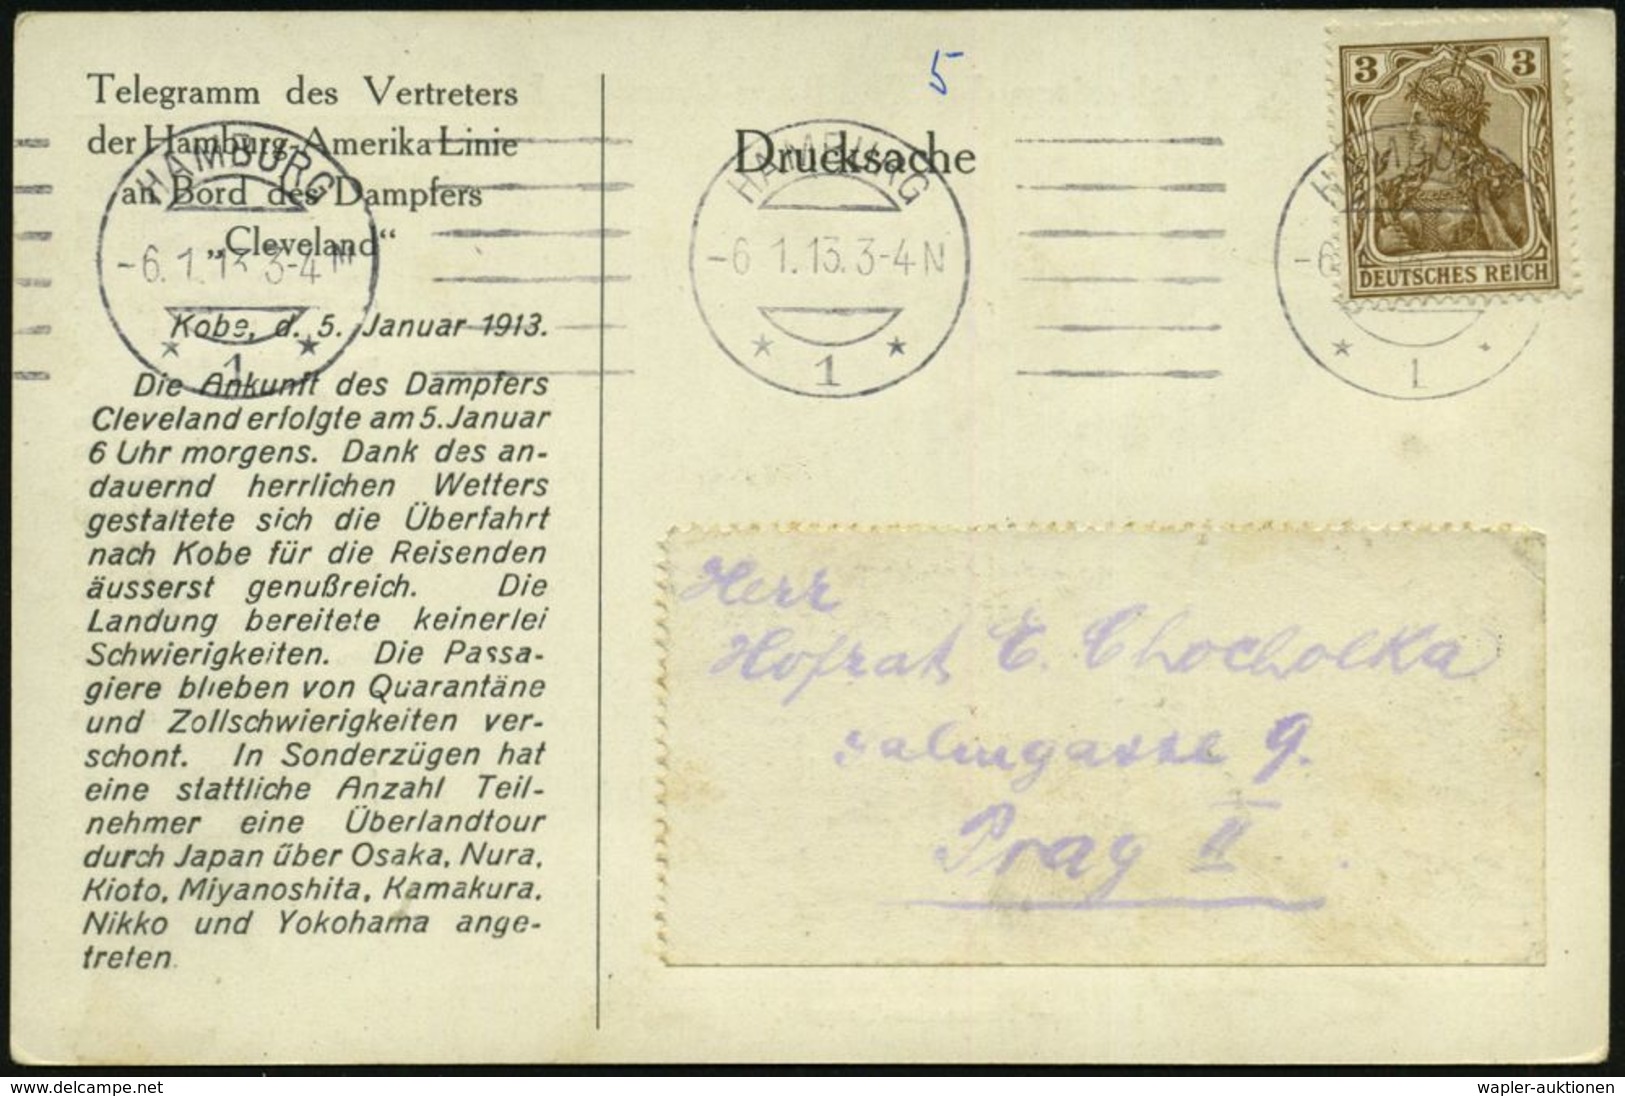 Telegramm des Vertreters
der Hamburg-Amerika Linie
an Bord des Dampfers
„Cleveland“
Kobe, d. 5. Januar 1913.
Die Ankunft des Dampfers
Cleveland erfolgte am 5. Januar
6 Uhr morgens. Dank des an-
dauernd herrlichen Wetters
gestaltete sich die Überfahrt
nach Kobe für die Reisenden
äusserst genußreich. Die
Landung bereitete keinerlei
Schwierigkeiten. Die Passa-
giere blieben von Quarantäne
und Zollschwierigkeiten ver-
schont. In Sonderzügen hat
eine stattliche Anzahl Teil-
nehmer eine Überlandtour
durch Japan über Osaka, Nura,
Kioto, Miyanoshita, Kamakura.
Nikko und Yokohama ange-
treten.
HAMBURG
-6.1.13.3-4N
* 1 *
5
Drucksache
HAMBURG
-6 1.13.3-4N
* 1 *
3 3
DEUTSCHES REICH
-6
* 1
Herr
Hofrat E. Chocholka
9.
Prag II
delcampe.net
wapler-auktionen